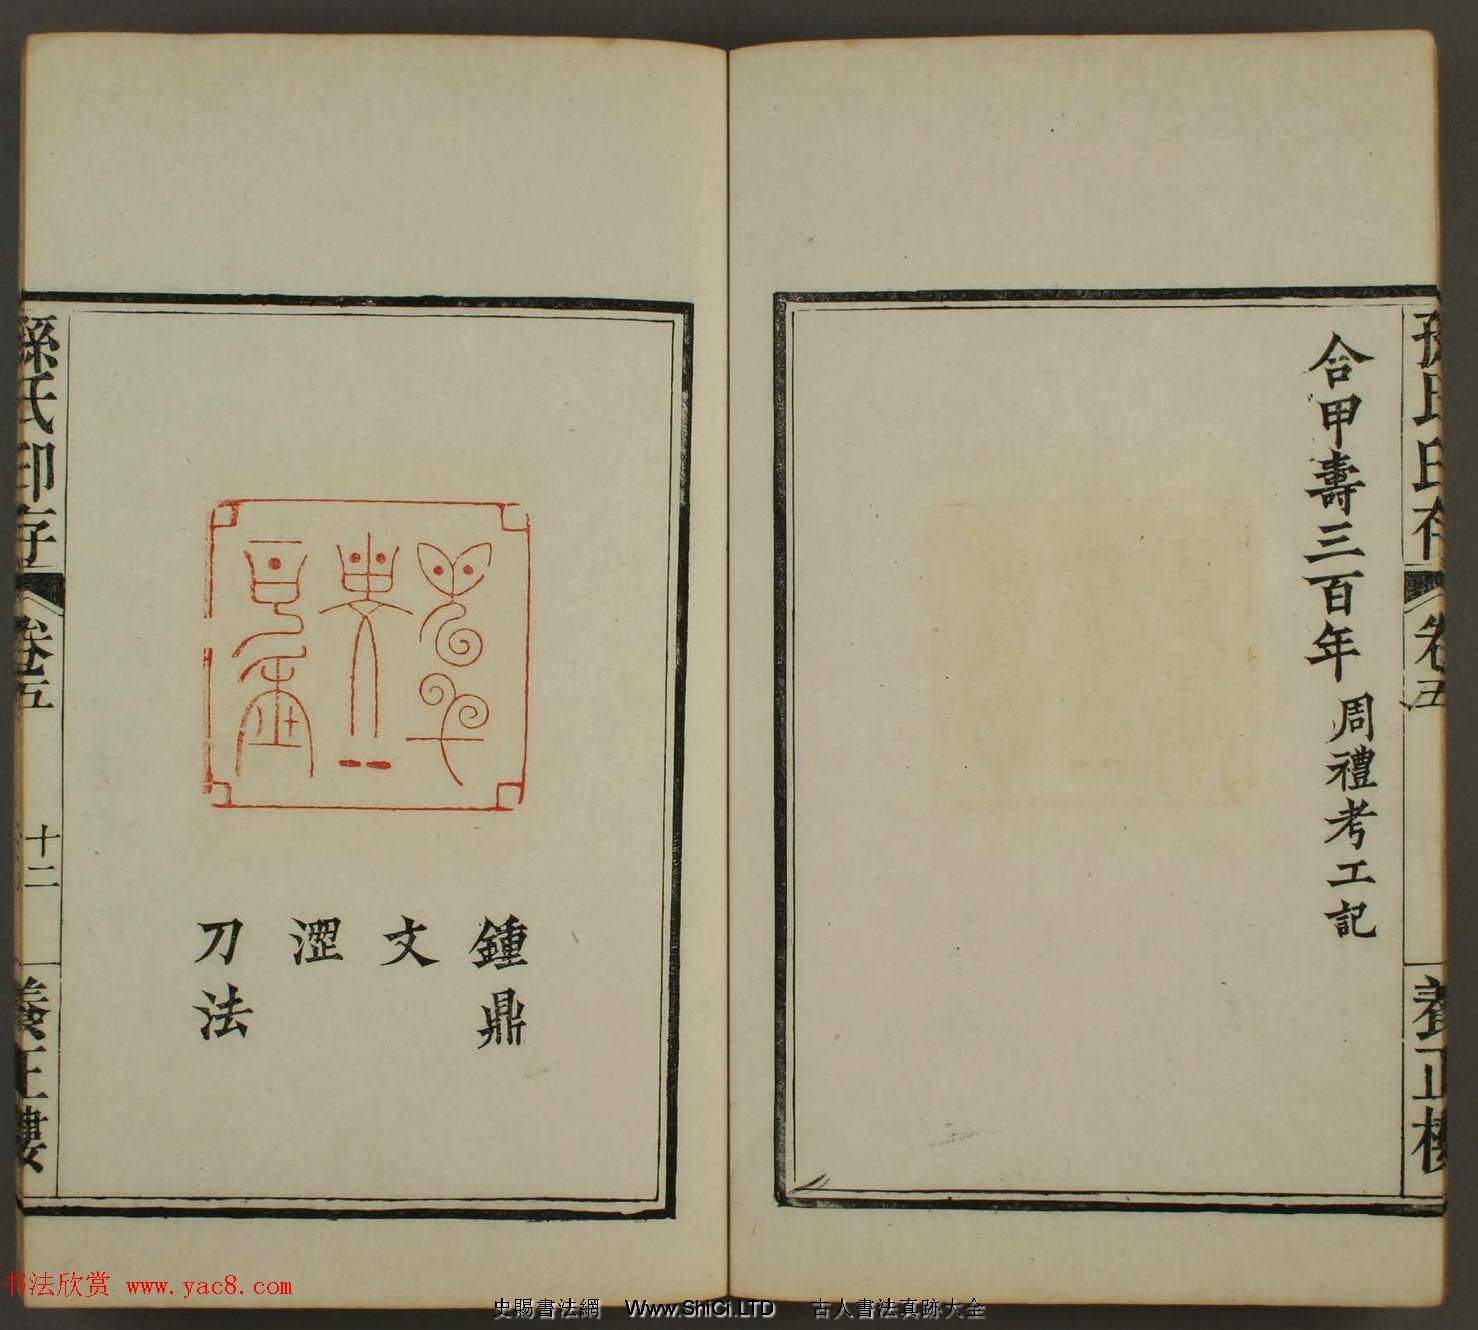 合甲壽三百年 周禮考工記
孫氏印存
卷五
養正樓
鍾鼎
文
澀
刀法
孫氏印存
卷五
十二
養正樓
书法欣赏 www.yac8.com
史賜書法網 Www.ShiCi.LTD 古人書法真跡大全